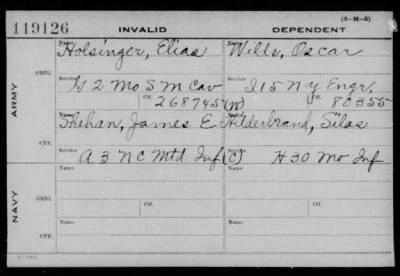 (3-M-5)
119126 INVALID DEPENDENT
Name Holsinger, Elias Name Wills, Oscar
ORIG.
Service G 2 Mo S M Cav Service I 15 N Y Engr,
Ctf. 268745 (W) Ctf. 80355
ARMY
Shehan, James E Hilderbrand, Silas
CTF.
Service A 3 N C Mtd Inf (C) Service H 30 Mo Inf
Name Name
ORIG.
Service Ctf. Service Ctf.
NAVY
Name Name
CTF.
Service Service